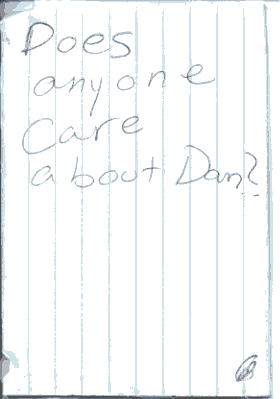 Does
anyone
Care
about Dan?